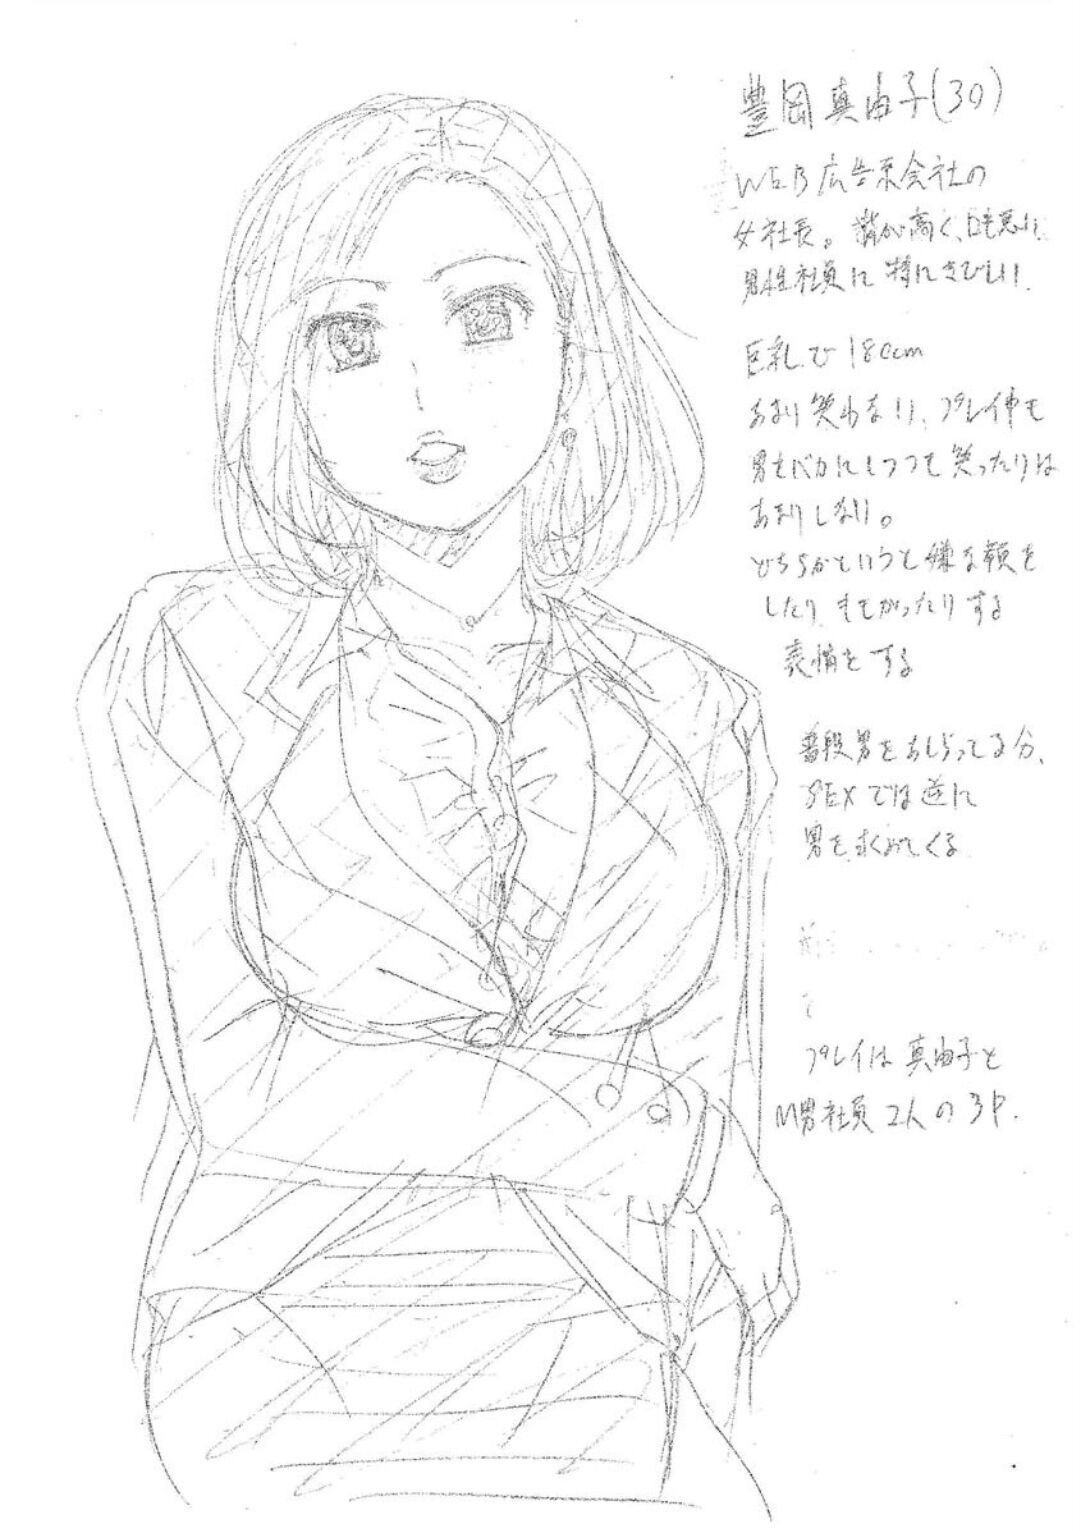 豊岡真由子(30)
WEB広告系会社の
女社長。背が高く、口も悪い、
男性社員に特にきびしい.
巨乳で180cm
あまり笑わない、プレイ中も
男をバカにしつつも笑ったりは
あまりしない。
どちらかというと嫌な顔を
したり する
表情をする
普段男をあしらってる分、
SEXでは逆に
男を求めてくる
プレイは真由子と
M男社員2人の3P.